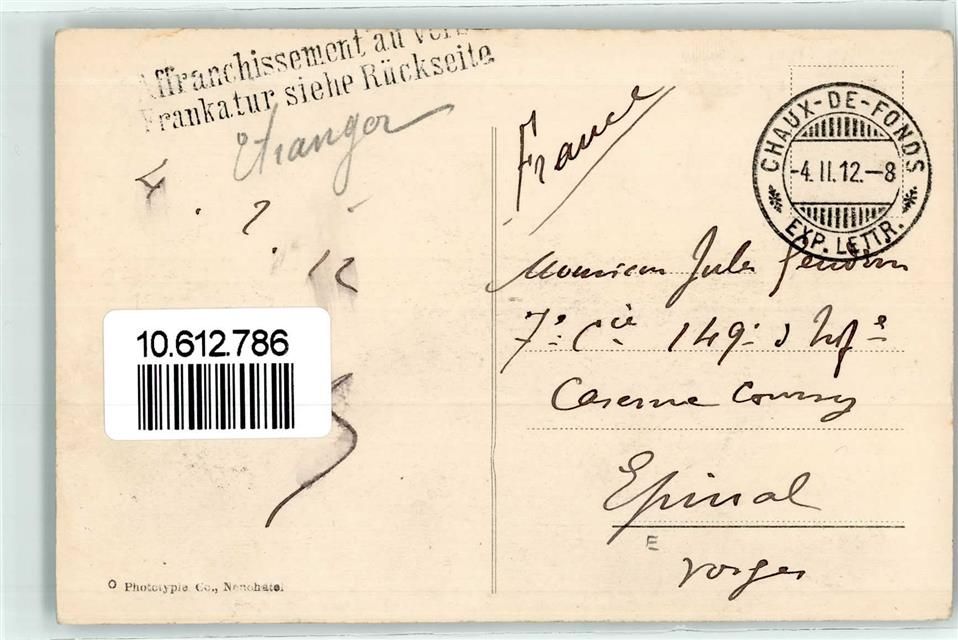 Affranchissement au
Frankatur siehe Rückseite
Etranger
France
CHAUX-DE-FONDS
-4.II.12.-8
EXP. LETTR.
Monsieur Jules
7e Cie 149e d'Infie
Caserne Courcy
Epinal
E
Vosges
10.612.786
Phototypie Co., Neuchâtel